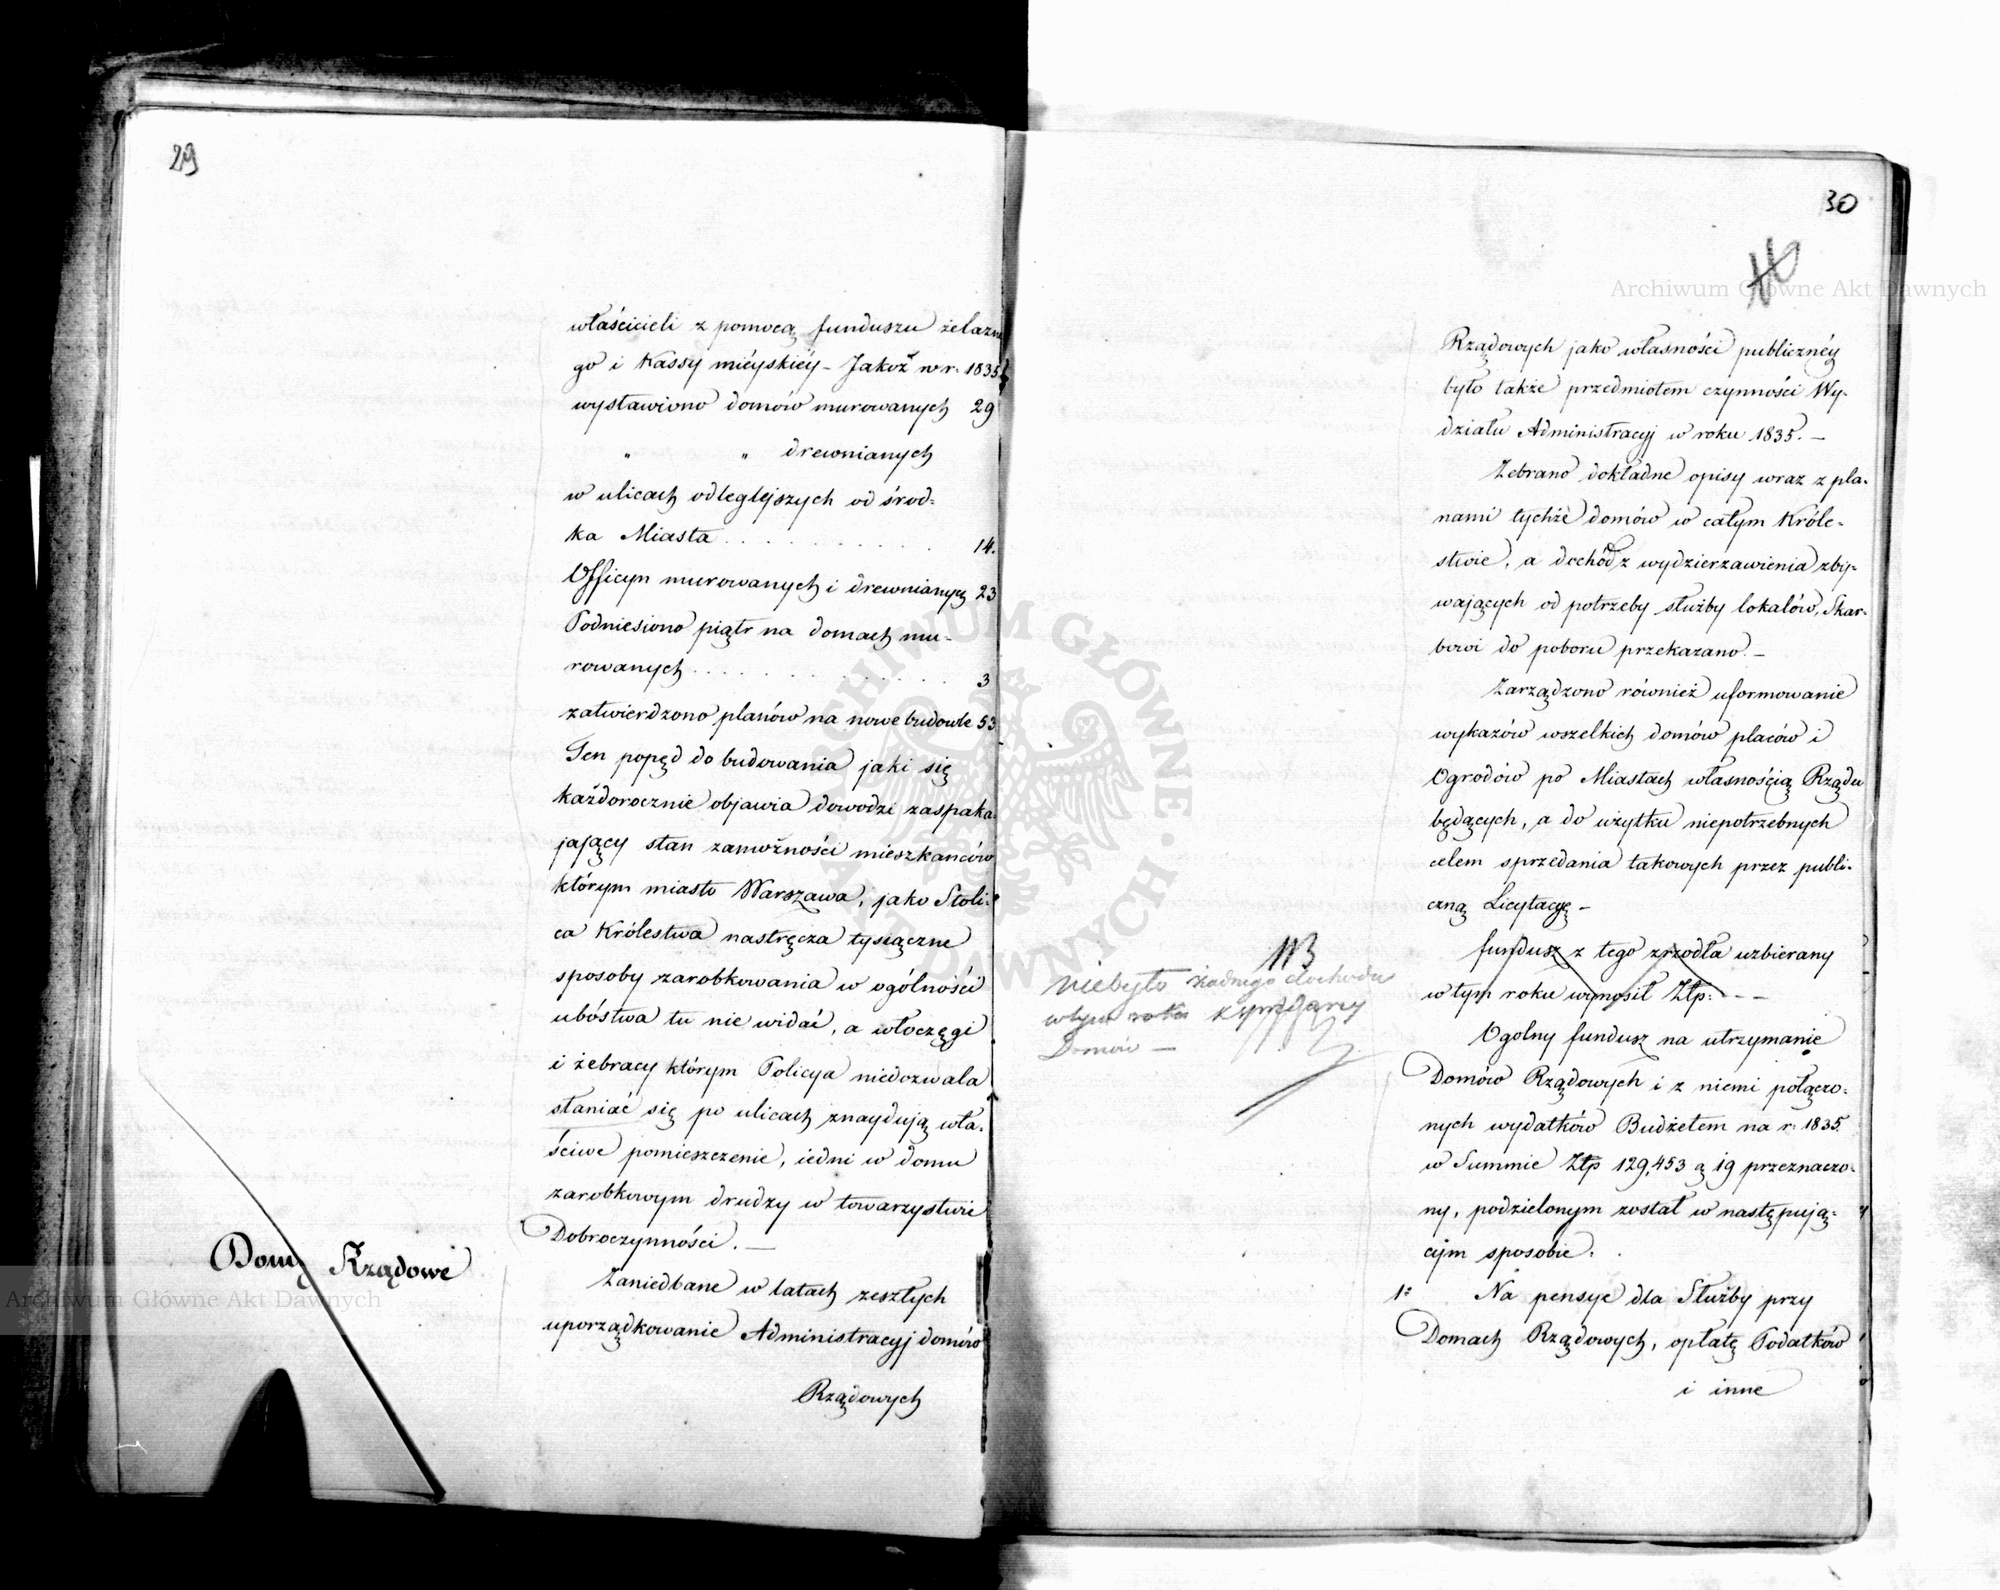 29
właścicieli z pomocą funduszu żelazne
go i Kassy mieyskiey – Jakoż w r. 1835
wystawiono domów murowanych 29
" " drewnianych
w ulicach odleglejszych od środ=
ka Miasta . . . . . . . . . . 14.
Officyn murowanych i drewnianych 23
Podniesiono piątr na domach mu-
rowanych . . . . . . . . . . . . 3
zatwierdzono planów na nowe budowle 53
Ten popęd do budowania jaki się
każdorocznie objawia dowodzi zaspaka-
jający stan zamożności mieszkańców
którym miasto Warszawa, jako Stoli-
ca Królestwa nastręcza tysiączne
sposoby zarobkowania w ogólności
ubóstwa tu nie widać, a włóczęgi
i żebracy którym Policya niedozwala
słaniać się po ulicach znaydują wła-
ściwe pomieszczenie, iedni w domu
zarobkowym drudzy w towarzystwie
Dobroczynności. —
Domy Rządowe
Zaniedbane w latach zeszłych
uporządkowanie Administracyj domów
Rządowych
30
Rządowych jako własności publicznéy
było także przedmiotem czynności Wy-
działu Administracyj w roku 1835. —
Zebrano dokładne opisy wraz z pla-
nami tychże domów w całym Króle-
stwie, a dochód z wydzierzawienia zby-
wających od potrzeby służby lokalów, Skar-
bowi do poboru przekazano. —
Zarządzono również uformowanie
wykazów wszelkich domów placów i
Ogrodów po Miastach własnością Rządu
będących, a do użytku niepotrzebnych
celem sprzedania takowych przez publi-
czną Licytacyę —
fundusz z tego zrzodła uzbierany
w tym roku wynosił Złp: - - -
NB
niebyło żadnego dochodu
w tym roku
Domów —
Ogolny fundusz na utrzymanie
Domów Rządowych i z niemi połączo-
nych wydatków Budżetem na r: 1835.
w Summie Złp 129,453 g 19 przeznaczo-
ny, podzielonym został w następują-
cym sposobie:
1º Na pensye dla Służby przy
Domach Rządowych, opłatę Podatków
i inne
Archiwum Główne Akt Dawnych
Archiwum Główne Akt Dawnych
ARCHIWUM GŁÓWNE AKT DAWNYCH